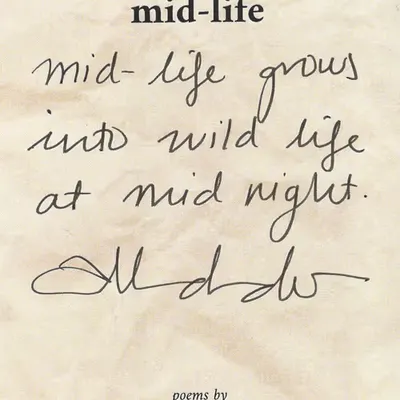 mid-life
mid-life grows
into wild life
at mid night.
poems by